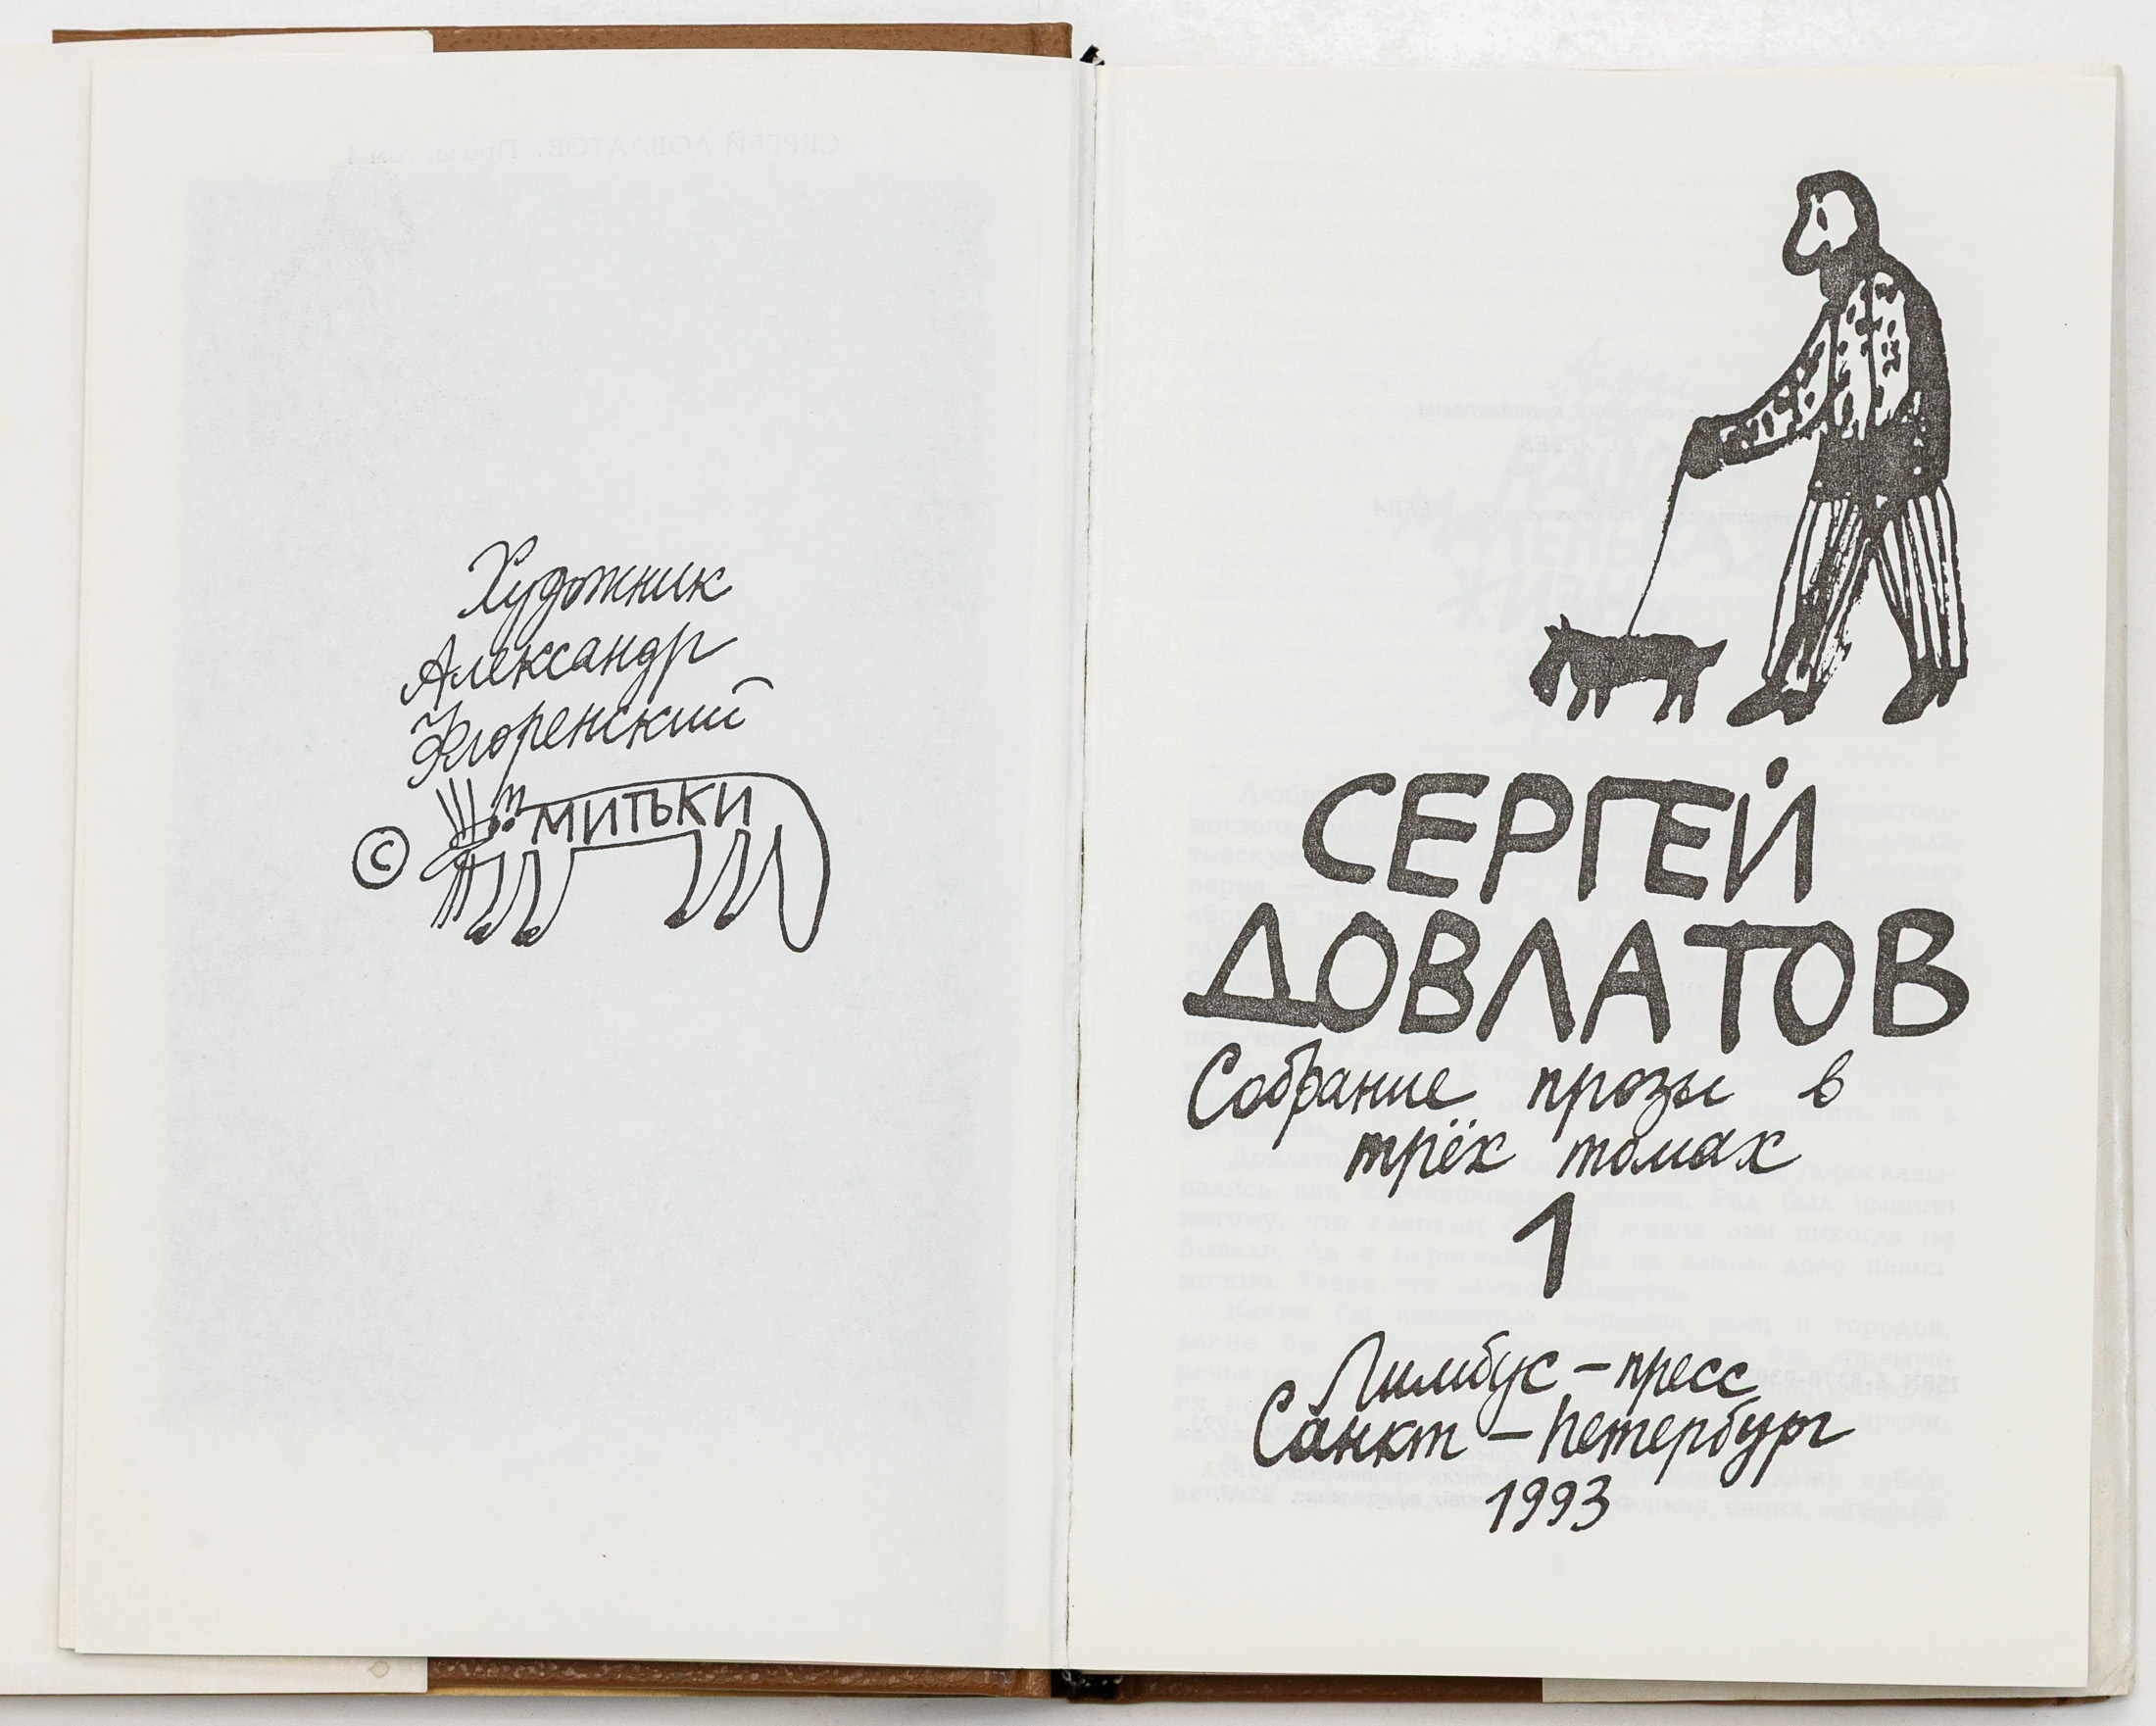 Художник
Александр
Флоренский
© МИТЬКИ
СЕРГЕЙ
ДОВЛАТОВ
Собрание прозы в
трёх томах
1
Лимбус-пресс
Санкт-Петербург
1993